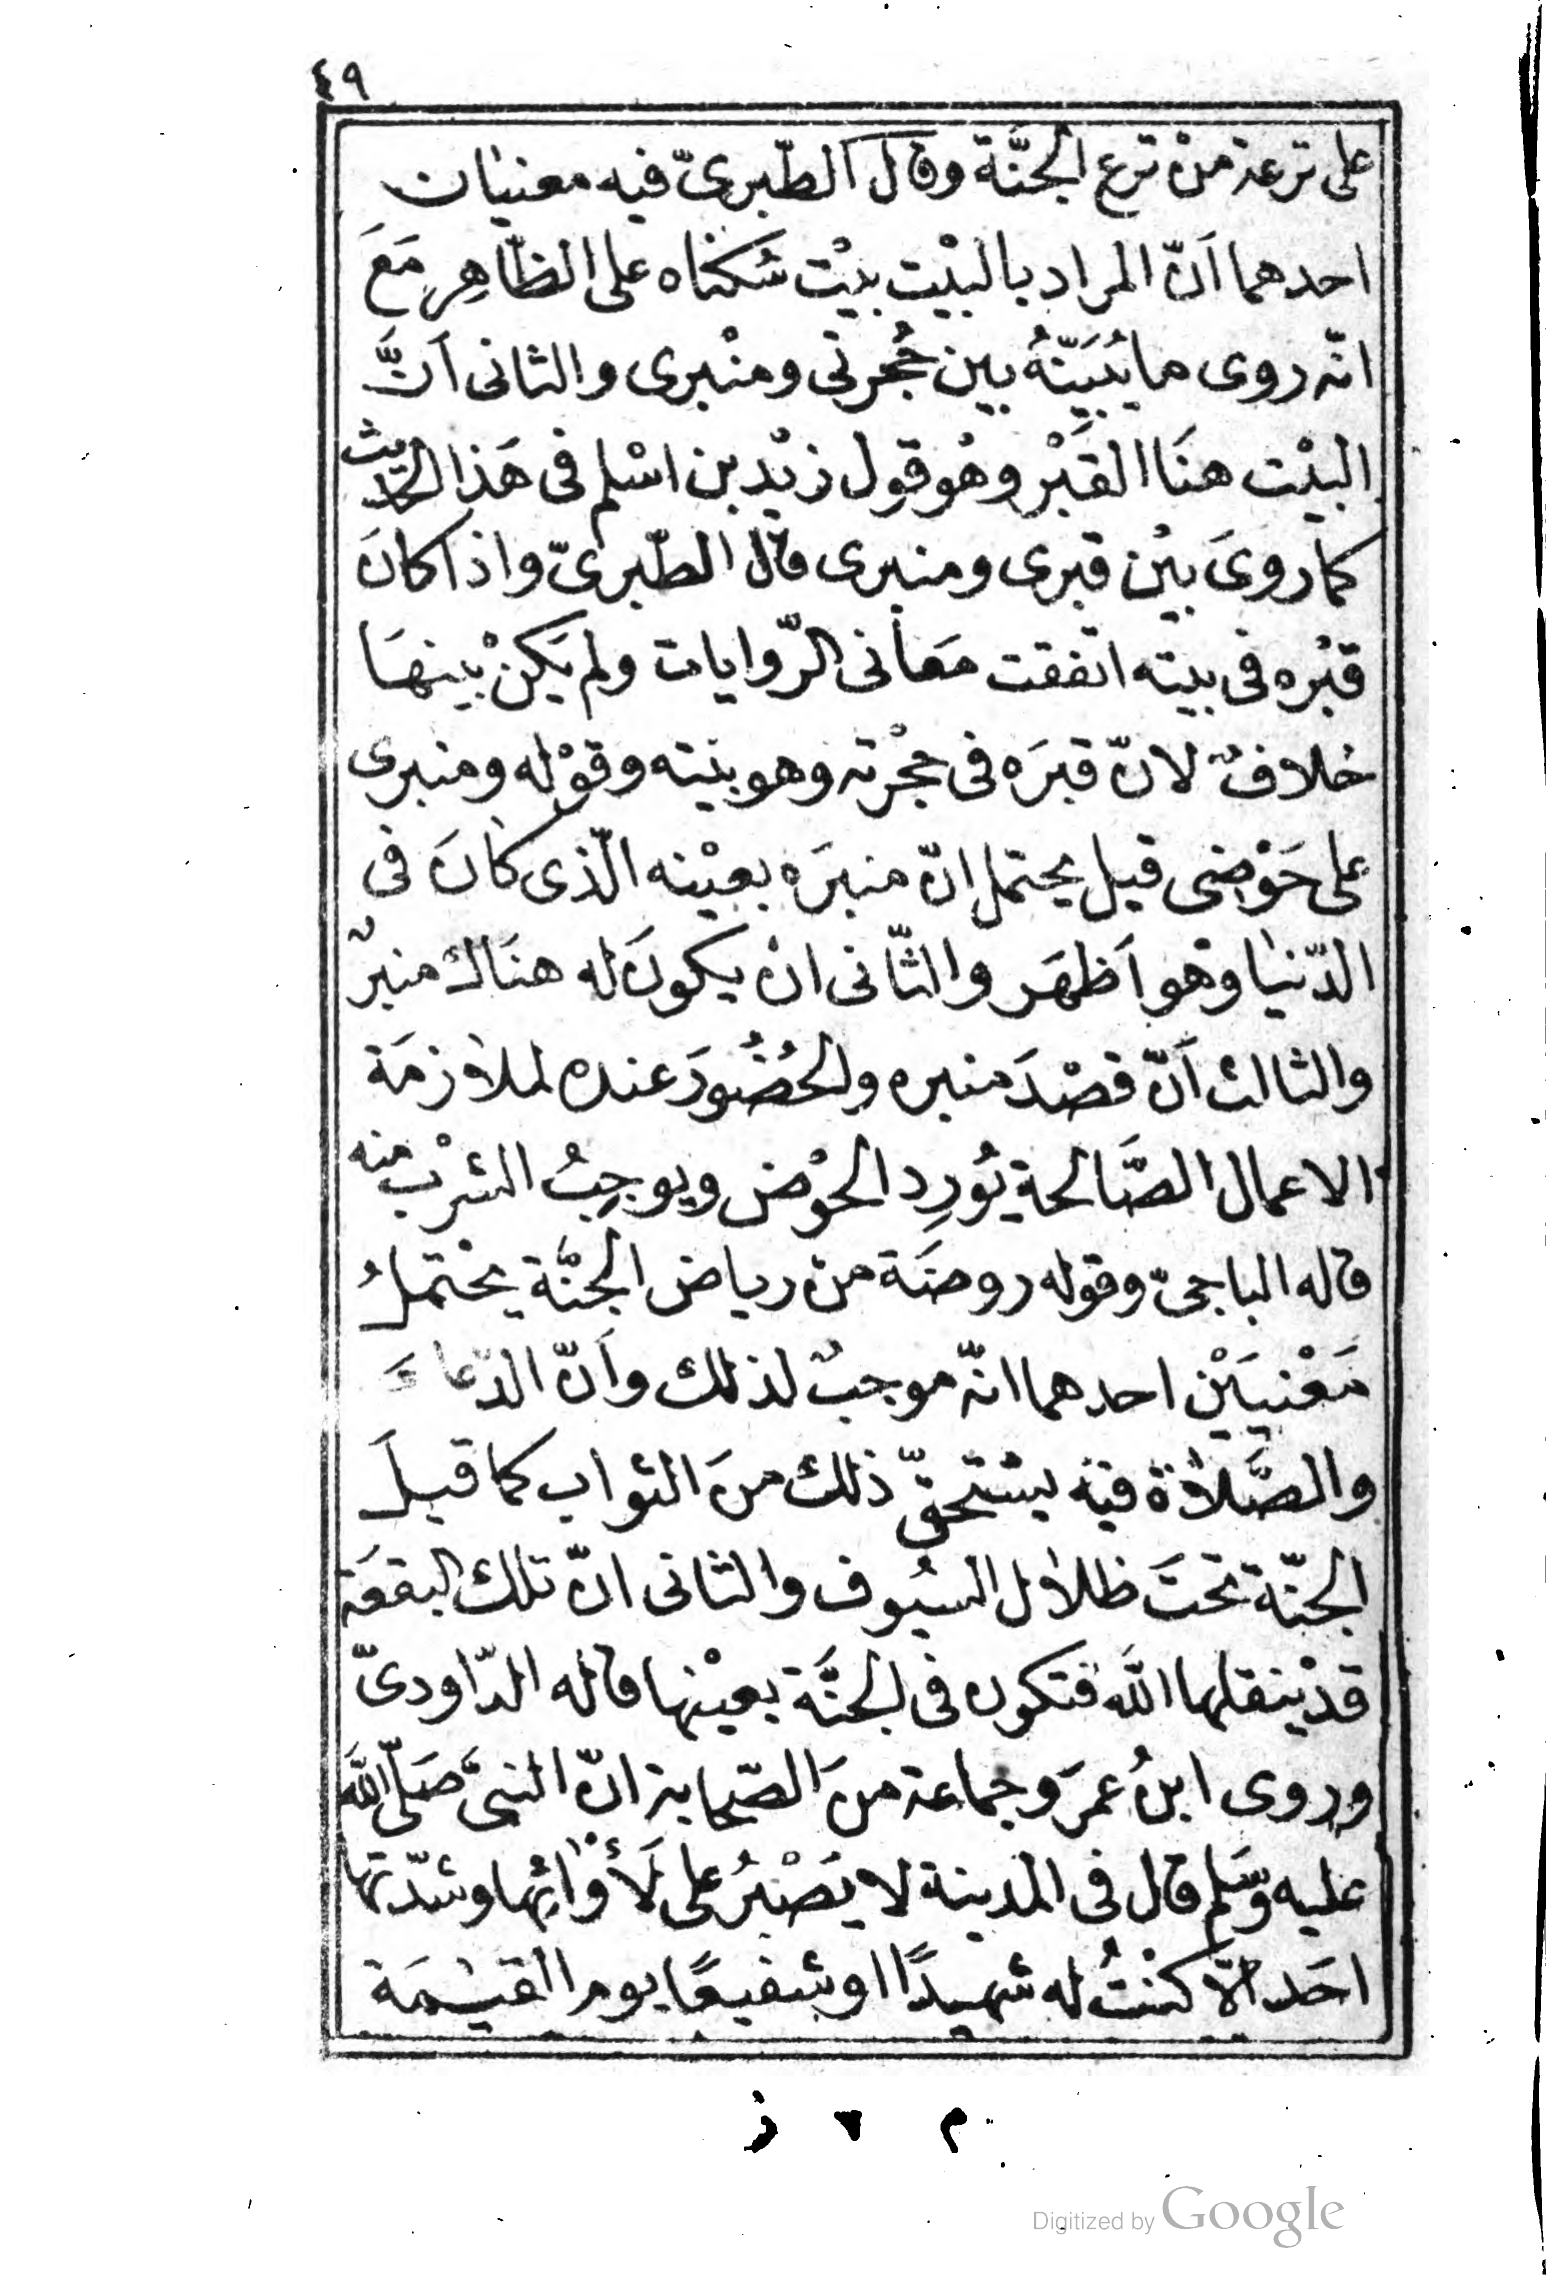 ٤٩
على ترعة من ترع الجنَّة وقال الطّبرىّ فيه معنيان
احدهما اَنّ المراد بالبيْت بيْت سُكناه على الظّاهِرِ مَعَ
انّه روى ما يُبَيّنُهُ بين حُجرتى ومنْبرى والثانى اَنَّ
البيْت هنَا القَبْر وهُو قول زيْد بن اسْلم فى هَذا الحديث
كما روىَ بيْن قبرى ومنبرى قال الطّبرىّ واذا كانَ
قبْره فى بيته اتفقت مَعانى الرّوايات ولم يَكنْ بينهَا
خلافٌ لانّ قبرَه فى حجْرته وهو بيْته وقوْله ومنبرى
على حَوْضى قيل يحتمل انّ منبرَه بعيْنه الّذى كانَ فى
الدّنيا وهو اَظهَر والثّانى انْ يكونَ له هنَاك منبرٌ
والثالث اَنّ قصْدَ منبره والحُضُورَ عنده لملازمَة
الاعمال الصَّالحة يُورِد الحوْض ويوجِبُ الشرْب منه
قاله الباجىّ وقوله روضَة من رياض الجنَّة يحْتملُ
مَعْنيَيْن احدهما انّه موجبٌ لذلك واَنّ الدّعاءَ
والصَّلاة فيْه يسْتحقّ ذلك منَ الثواب كما قيلَ
الجنّة تحتَ ظلال السُيوف والثانى انّ تلك البقعَة
قدْ ينقلها اللّه فتكون فى الجنَّة بعيْنها قاله الدّاودىّ
وروى ابنُ عمرَ وجماعة منَ الصّحابة انّ النبىّ صَلّى اللّهَ
عليه وَسَلم قال فى المدينة لا يَصْبرُ على لَأْوَائِها وشدّتها
احَد الاّ كنْتُ له شهيدًا او شفيعًا يوم القيٰمَة
م ٧ ز
Digitized by Google